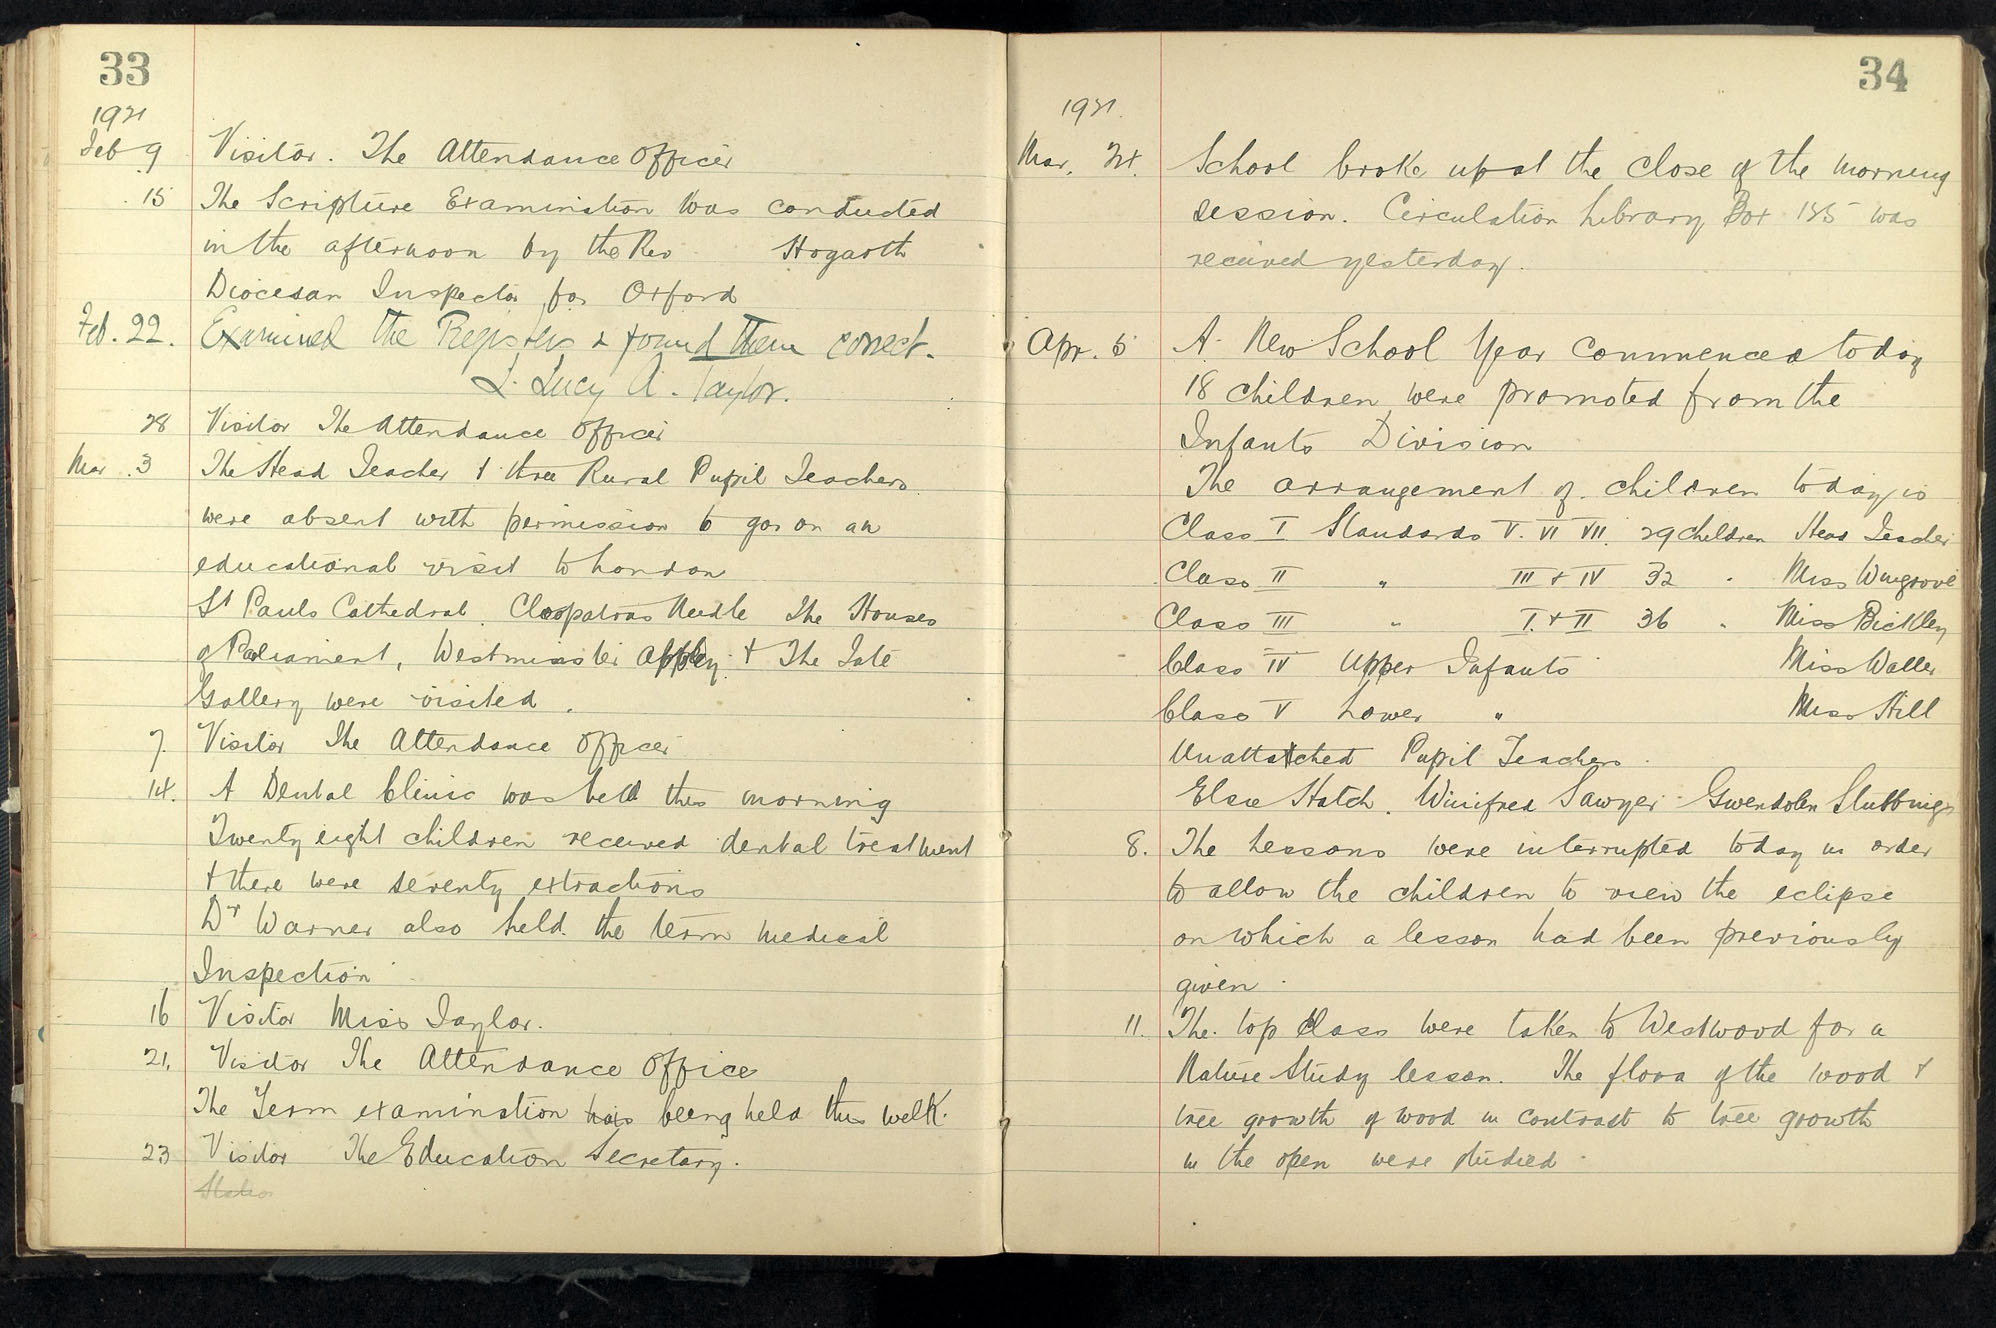 33
1921
Feb 9 Visitor. The Attendance Officer
15 The Scripture Examination was conducted
in the afternoon by the Rev Hogarth
Diocesan Inspector for Oxford
Feb. 22. Examined the Registers & found them correct.
L. Lucy A. Taylor.
28 Visitor The Attendance Officer
Mar. 3 The Head Teacher & three Rural Pupil Teachers
were absent with permission to go on an
educational visit to London
St Pauls Cathedral. Cleopatras Needle The Houses
of Parliament, Westminster Abbey & The Tate
Gallery were visited.
7. Visitor The Attendance Officer
14. A Dental Clinic was held this morning
Twenty eight children received dental treatment
& there were seventy extractions
Dr Warner also held the term medical
Inspection
16 Visitor Miss Taylor.
21. Visitor The Attendance Office
The Term examination is being held this week.
23 Visitor The Education Secretary.
34
1921.
Mar. 24. School broke up at the close of the morning
session. Circulation Library Box 185 was
received yesterday.
Apr. 5 A New School Year commenced today
18 children were promoted from the
Infants Division
The arrangement of children today is
Class I Standards V. VI VII. 29 children Head Teacher
Class II " III & IV 32 " Miss Wingrove
Class III " I. & II 36 " Miss Bickley
Class IV Upper Infants Miss Waller
Class V Lower " Miss Hill
Unattatched Pupil Teachers.
Elsie Hatch. Winifred Sawyer Gwendolen Stubbings
8. The Lessons were interrupted today in order
to allow the children to view the eclipse
on which a lesson had been previously
given.
11. The top class were taken to Westwood for a
Nature Study lesson. The flora of the wood &
tree growth of wood in contrast to tree growth
in the open were studied.